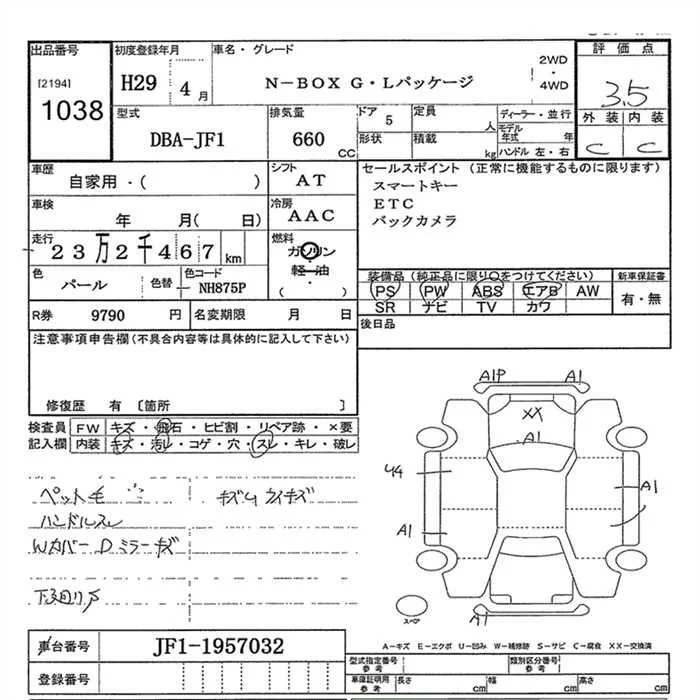 出品番号 初度登録年月 車名・グレード 評価点
[2194] 1038 H29 4月 N-BOX G・Lパッケージ 2WD・4WD 3.5
型式 排気量 ドア 5 定員 人 ディーラー・並行 外装 内装
DBA-JF1 660 CC 形状 積載 kg モデル年式 年 ハンドル 左・右 C C
車歴 自家用・( ) シフト AT セールスポイント (正常に機能するものに限ります)
スマートキー
車検 年 月( 日) 冷房 AAC ETC
バックカメラ
走行 23万2千467km 燃料 ガソリン・軽油・( )
色 パール 色替 色コード NH875P 装備品(純正品に限り○をつけてください) 新車保証書
PS PW ABS エアB AW 有・無
R券 9790円 名変期限 月 日 SR ナビ TV カワ
後日品
注意事項申告欄(不具合内容等は具体的に記入して下さい)
修復歴 有 〔箇所 〕
検査員 FW キズ・飛石・ヒビ割・リペア跡・×要
記入欄 内装 キズ・汚レ・コゲ・穴・スレ・キレ・破レ
ペット毛
ハンドルスレ
Wカバー Dミラーキズ
A1P A1
XX
A1
U4 A1
A1
スペア A1
A-キズ E-エクボ U-凹み W-補修跡 S-サビ C-腐食 XX-交換済
車台番号 JF1-1957032 型式指定番号 参考 類別区分番号 参考
登録番号 車庫証明用 参考 長さ cm 幅 cm 高さ cm